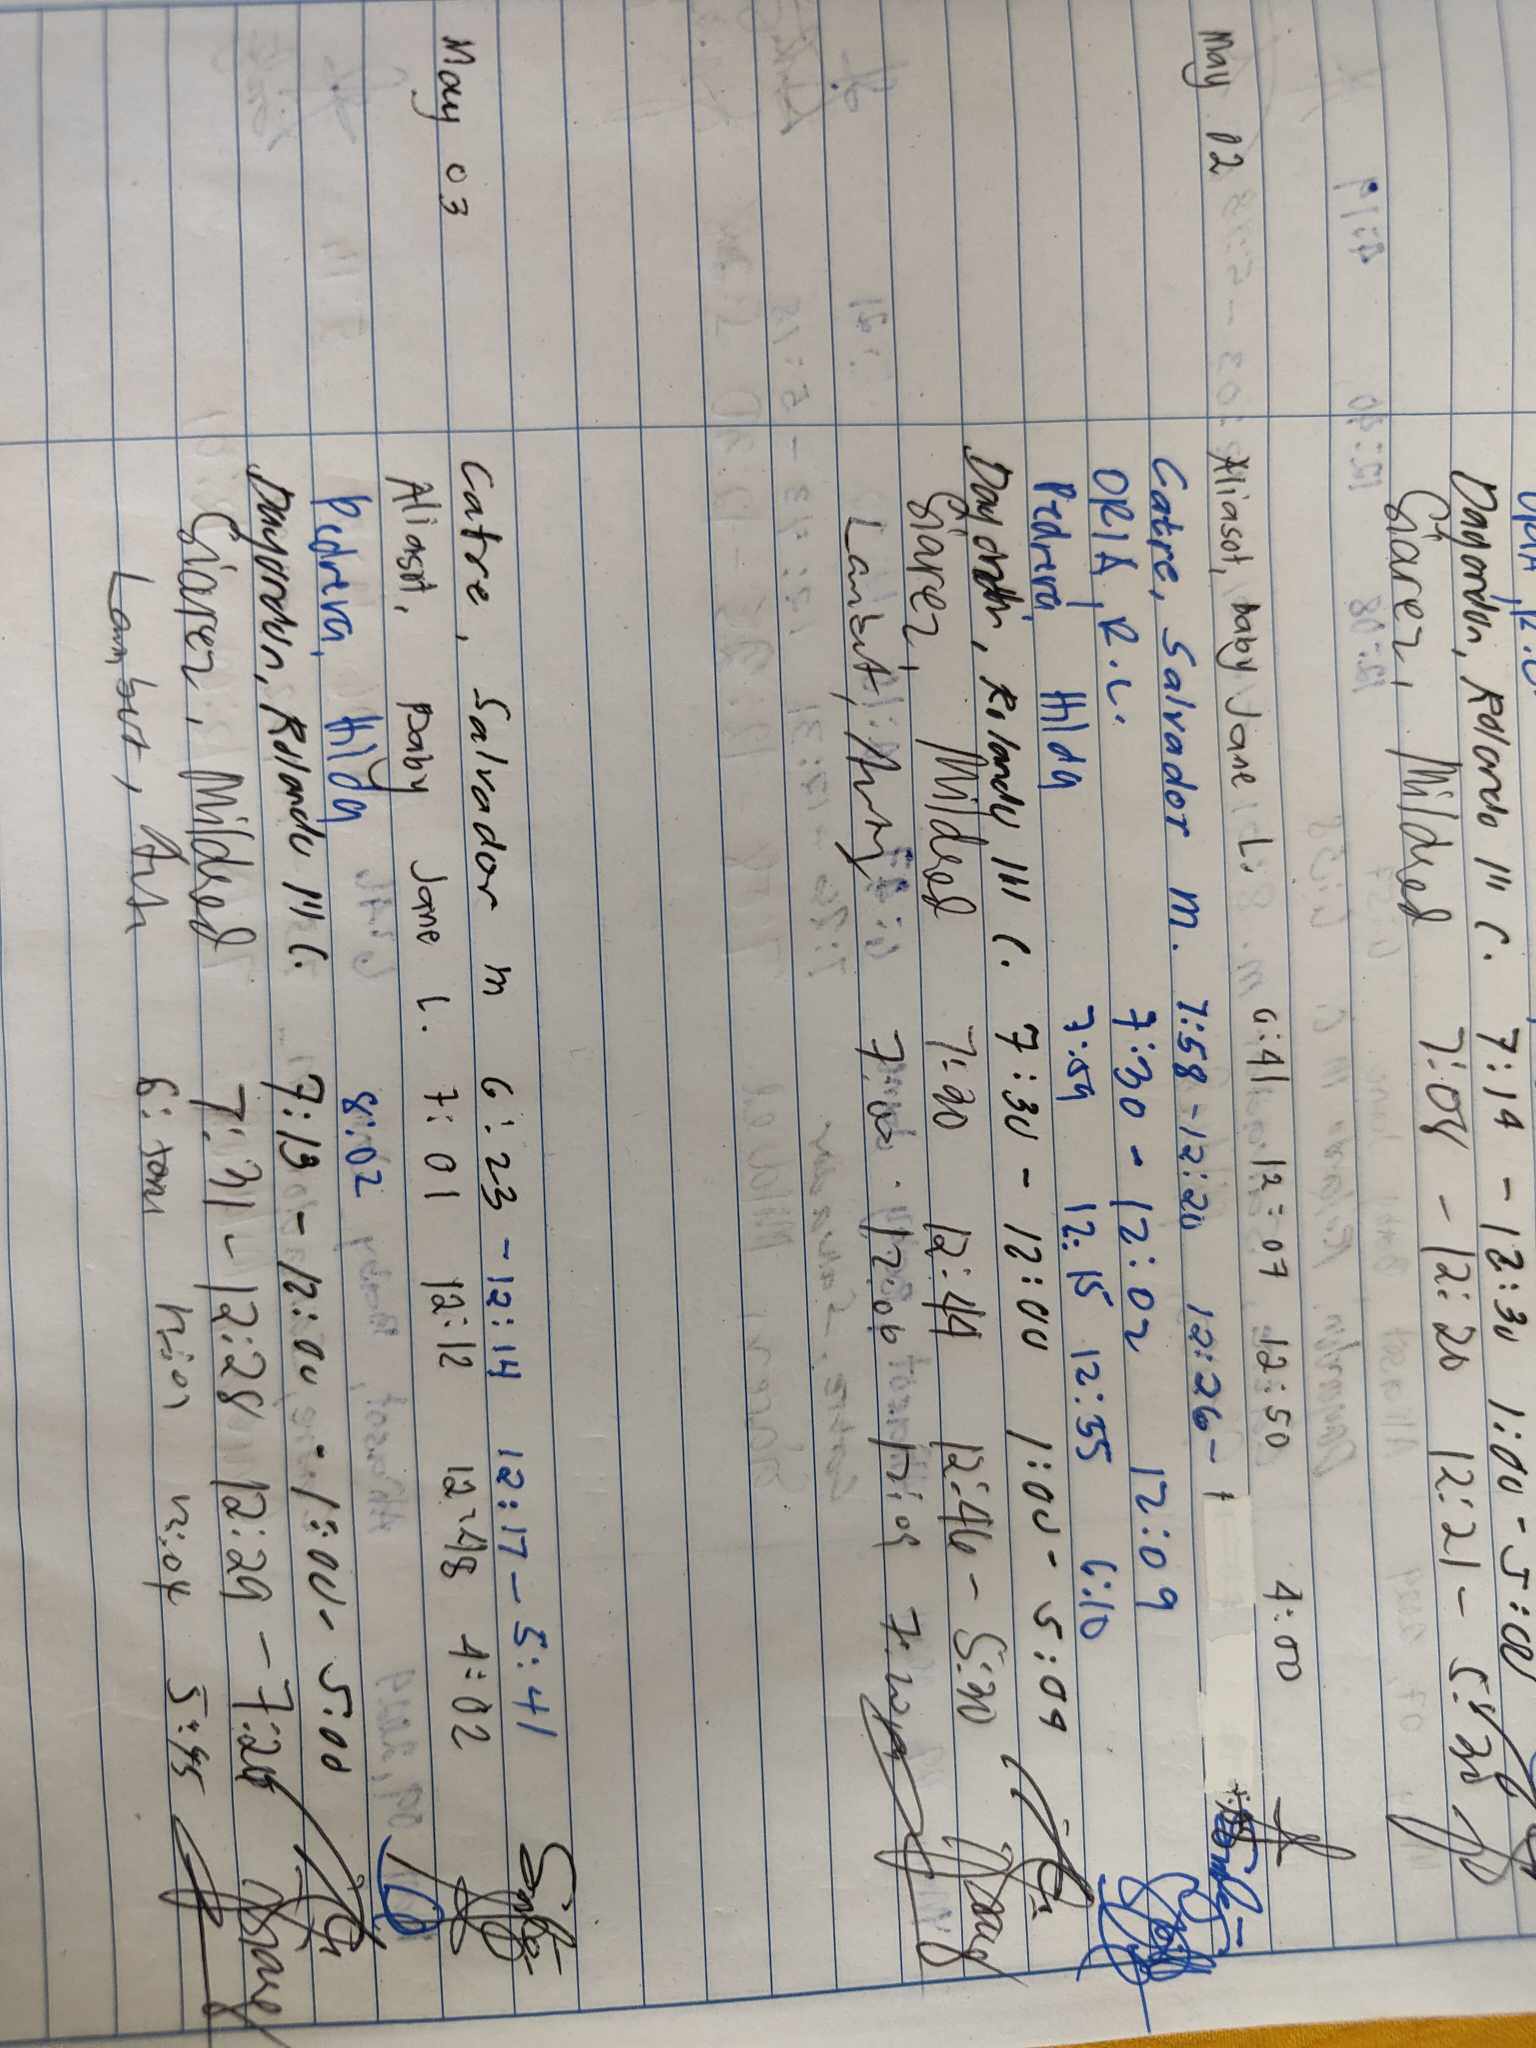 Dagondon, Rolando III C. 7:14 - 12:30 1:00 - 5:00
Giarez, Mildred 7:08 - 12:20 12:21 - 5:30
May 02 Aliasot, baby Jane L. 6:41 12:07 12:50 4:00
Catre, Salvador M. 7:58 - 12:20 12:26 -
ORIA, R.L. 7:30 - 12:02 12:09
Pedrera, Hilda 7:59 12:15 12:55 6:10
Rolando III C. 7:30 - 12:00 1:00 - 5:09
Giarez, Mildred 7:20 12:44 12:46 - 5:30
Lambut, 7:00 12:06 12:09
May 03 Catre, Salvador M 6:23 - 12:14 12:17 - 5:41
Aliasot, Baby Jane L. 7:01 12:12 12:48 4:02
Pedrera, Hilda 8:02
Rolando III C. 7:13 - 12:00 - 1:00 - 5:00
Giarez, Mildred 7:31 - 12:28 12:29 - 7:26
Lambut, 5:45